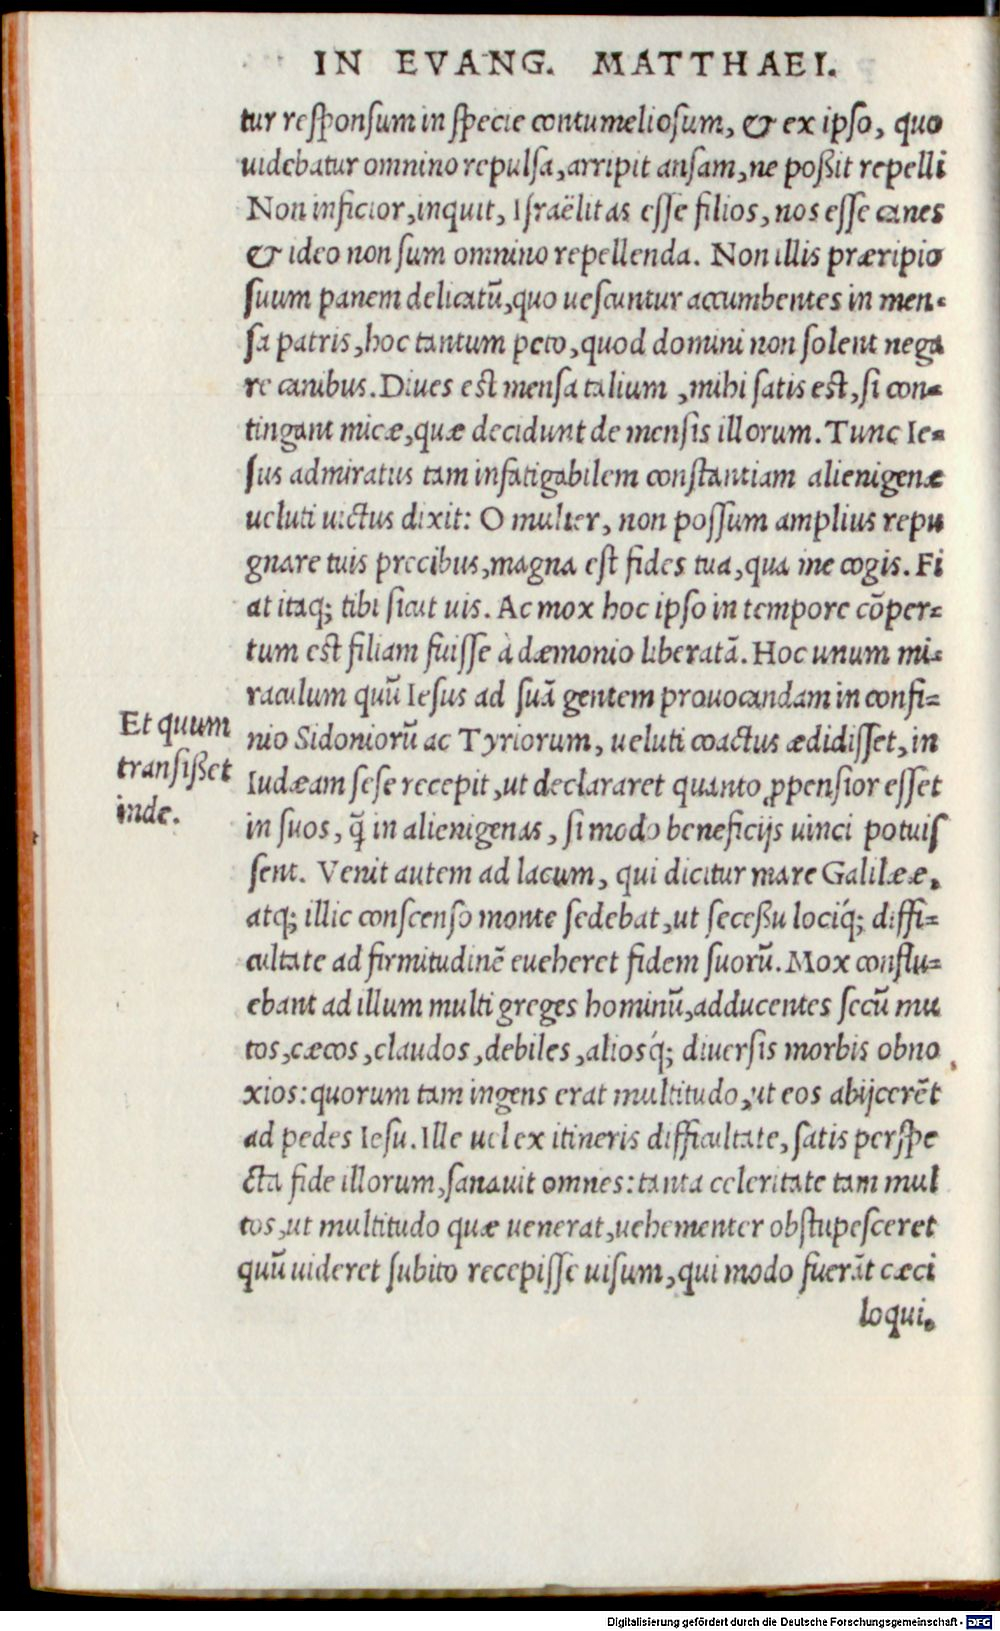 IN EVANG. MATTHAEI.
tur responsum in specie contumeliosum, & ex ipso, quo
uidebatur omnino repulsa, arripit ansam, ne poßit repelli
Non inficior, inquit, Israëlitas esse filios, nos esse canes
& ideo non sum omnino repellenda. Non illis præripio
suum panem delicatū, quo uescuntur accumbentes in men-
sa patris, hoc tantum peto, quod domini non solent nega
re canibus. Diues est mensa talium, mihi satis est, si con-
tingant micæ, quæ decidunt de mensis illorum. Tunc Ie-
sus admiratus tam infatigabilem constantiam alienigenæ
ueluti uictus dixit: O mulier, non possum amplius repu
gnare tuis precibus, magna est fides tua, qua me cogis. Fi
at itaq; tibi sicut uis. Ac mox hoc ipso in tempore cōper-
tum est filiam fuisse à dæmonio liberatā. Hoc unum mi-
raculum quū Iesus ad suā gentem prouocandam in confi-
Et quum
transißet
inde.
nio Sidoniorū ac Tyriorum, ueluti coactus ædidisset, in
Iudæam sese recepit, ut declararet quanto ꝓpensior esset
in suos, q̄ in alienigenas, si modo beneficijs uinci potuis
sent. Venit autem ad lacum, qui dicitur mare Galilææ,
atq; illic conscenso monte sedebat, ut secessu lociq́; diffi-
cultate ad firmitudinē eueheret fidem suorū. Mox conflu-
ebant ad illum multi greges hominū, adducentes secū mu
tos, cæcos, claudos, debiles, aliosq́; diuersis morbis obno
xios: quorum tam ingens erat multitudo, ut eos abijcerēt
ad pedes Iesu. Ille uel ex itineris difficultate, satis perspe
cta fide illorum, sanauit omnes: tanta celeritate tam mul
tos, ut multitudo quæ uenerat, uehementer obstupesceret
quū uideret subito recepisse uisum, qui modo fuerāt cæci
loqui.
Digitalisierung gefördert durch die Deutsche Forschungsgemeinschaft - DFG